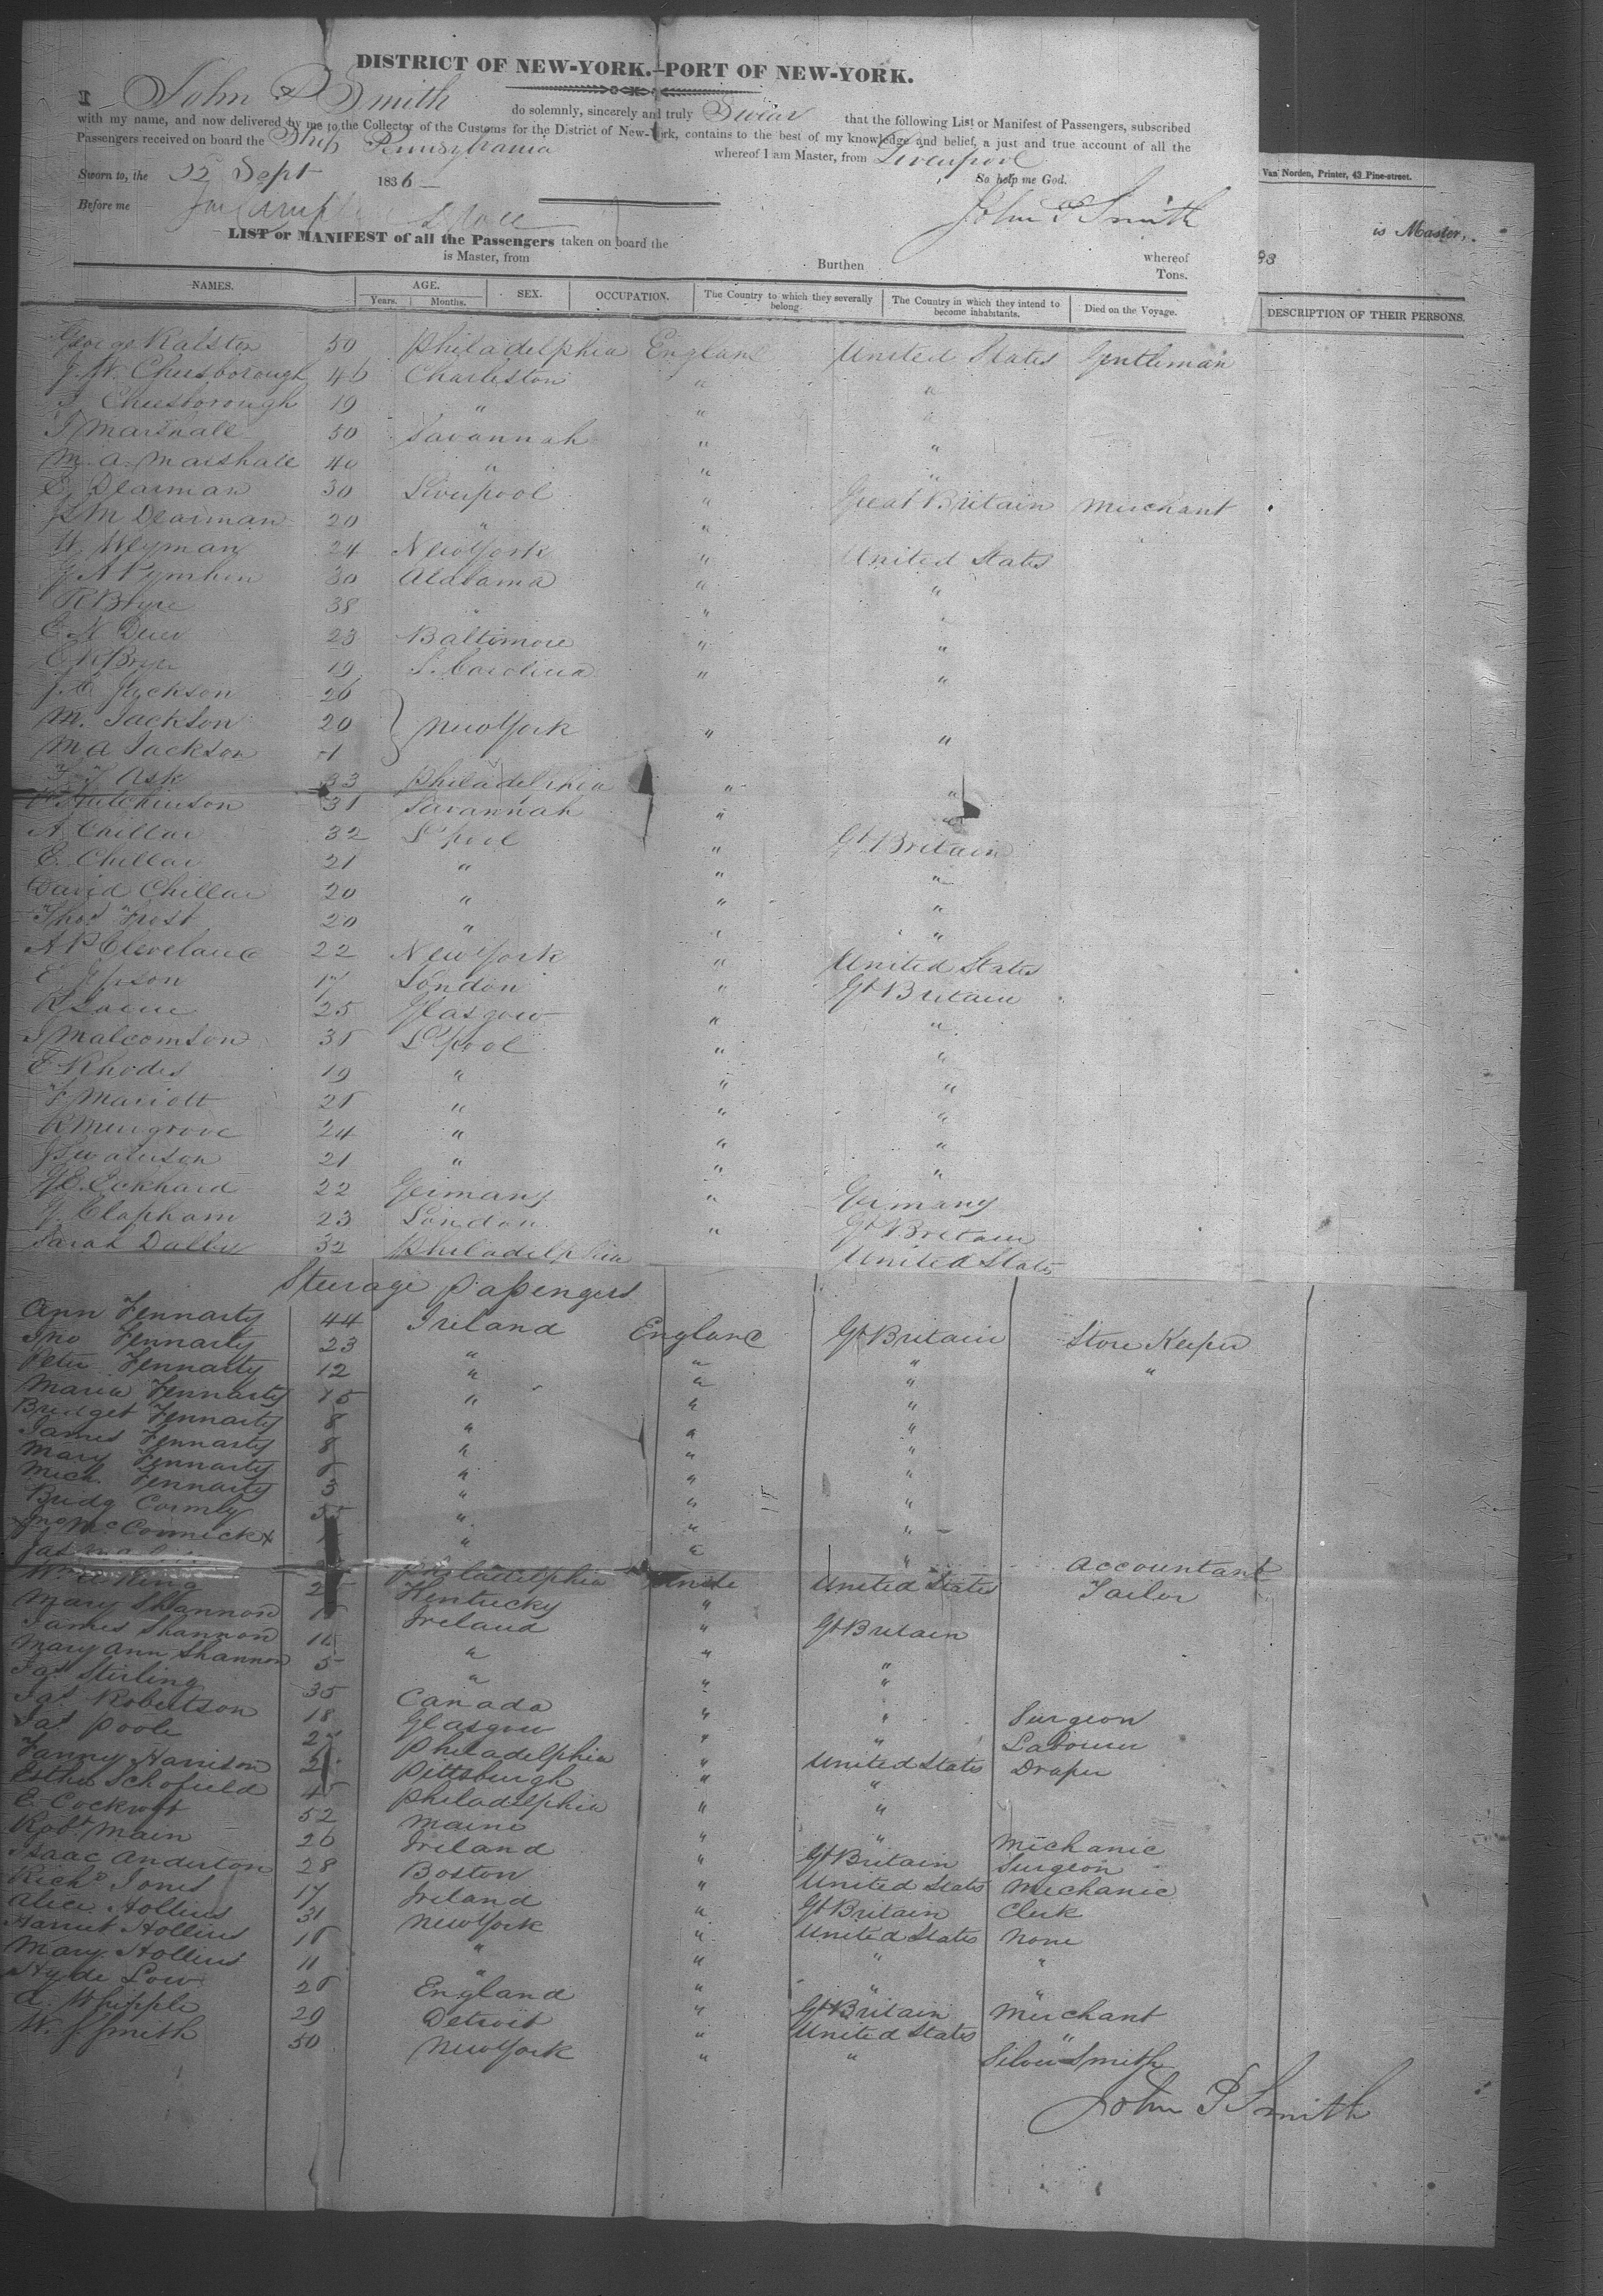 DISTRICT OF NEW-YORK.—PORT OF NEW-YORK.
I John P Smith do solemnly, sincerely and truly Swear that the following List or Manifest of Passengers, subscribed
with my name, and now delivered by me to the Collector of the Customs for the District of New-York, contains to the best of my knowledge and belief, a just and true account of all the
Passengers received on board the Ship Pennsylvania whereof I am Master, from Liverpool
Sworn to, the Sept 1836 So help me God.
Before me John P Smith
Van Norden, Printer, 43 Pine-street.
LIST or MANIFEST of all the Passengers taken on board the whereof
is Master, from Burthen Tons.
is Master,
NAMES. AGE. Years. Months. SEX. OCCUPATION. The Country to which they severally belong. The Country in which they intend to become inhabitants. Died on the Voyage. DESCRIPTION OF THEIR PERSONS.
George Ralston 50 Philadelphia England United States Gentleman
J. W. Cheesborough 46 Charleston " "
Cheesborough 19 " " "
J Marshall 50 Savannah " "
M. A. Marshall 40 " " "
E Dearman 30 Liverpool " Great Britain Merchant
M Dearman 20 " "
W Weyman 24 New York " United States
30 Alabama " "
38 " "
23 Baltimore " "
19 S. Carolina " "
J. C Jackson 26
M. Jackson 20 New York " "
M A Jackson
Ask 33 Philadelphia " "
Hutchinson 31 Savannah " "
A Chillar 32 L'pool " Gt Britain
E. Chillar 21 " " "
David Chillar 20 " " "
Thos Frost 20 " " "
A P Cleveland 22 New York " United States
E Jepson 17 London " Gt Britain
25 Glasgow " "
J Malcomson 35 L'pool " "
E Rhodes 19 " " "
F Marriott 25 " " "
R Musgrove 24 " " "
J Swaterson 21 " " "
Eckhard 22 Germany " Germany
J. Clapham 23 London " Gt Britain
Sarah Dalby 32 Philadelphia United States
Steerage Passengers
Ann Fennarty 44 Ireland England Gt Britain Store Keeper
Jno Fennarty 23 " " " "
Peter Fennarty 12 " " "
Maria Fennarty 15 " " "
Bridget Fennarty 8 " " "
James Fennarty 8 " " "
Mary Fennarty " " "
Mich. Fennarty 3 " " "
Bridg Cormly " " "
Jno McCormick " " "
Jas Philadelphia United States Accountant
Wm King Kentucky " Tailor
Mary Shannon Ireland " Gt Britain
James Shannon " " "
Mary Ann Shannon 5 " " "
Jas Stirling 35 Canada " " Surgeon
Jas Robertson 18 Glasgow " " Labourer
Jas Poole Philadelphia " United States Draper
Fanny Harrison Pittsburgh " "
Esther Schofield 45 Philadelphia " "
E. Cockroft 52 Maine " " Mechanic
Robt Main 26 Ireland " Gt Britain Surgeon
Isaac Anderton 28 Boston " United States Mechanic
Richd Jones 17 Ireland " Gt Britain Clerk
Alice Hollins 31 New York " United States None
Harriet Hollins " " " "
Mary Hollins 11 " " " "
Hyde Low England " Gt Britain Merchant
A. Whipple 29 Detroit " United States "
W. J. Smith 50 New York " " Silver Smith
John P Smith